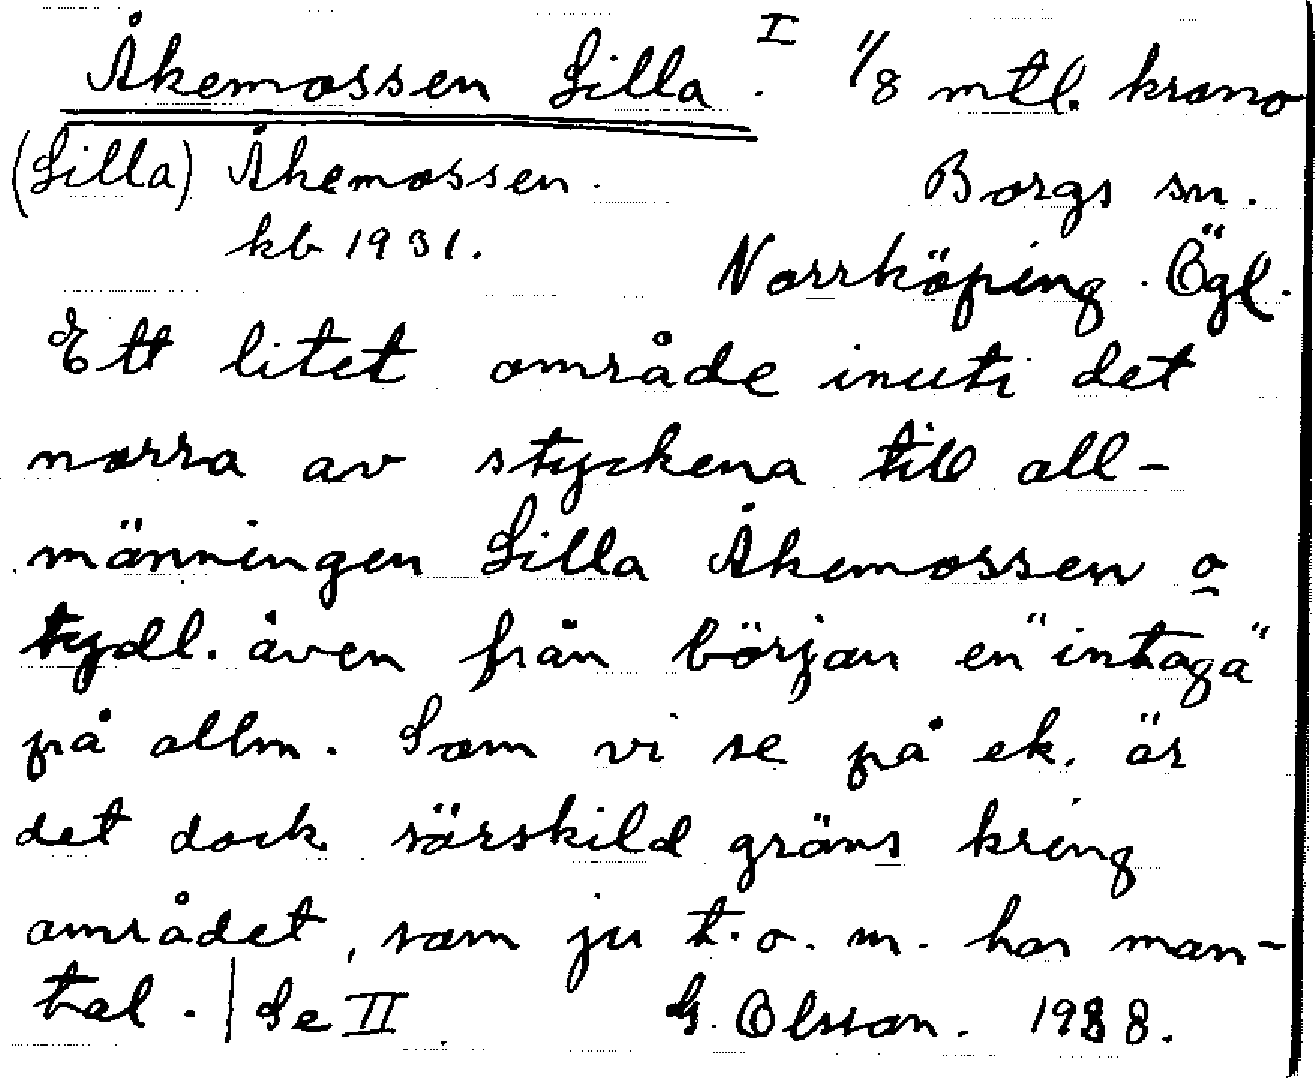 Åkemossen Lilla. I 1/8 mtl. krono
(Lilla) Åkemossen. Borgs sn.
kb 1931. Norrköping. Ögl.
Ett litet område inuti det
norra av styckena till all-
männingen Lilla Åkemossen o
tydl. även från början en "intaga"
på allm. Som vi se på ek. är
det dock särskild gräns kring
området, som ju t.o.m. har man-
tal. | Se II G. Olsson. 1938.